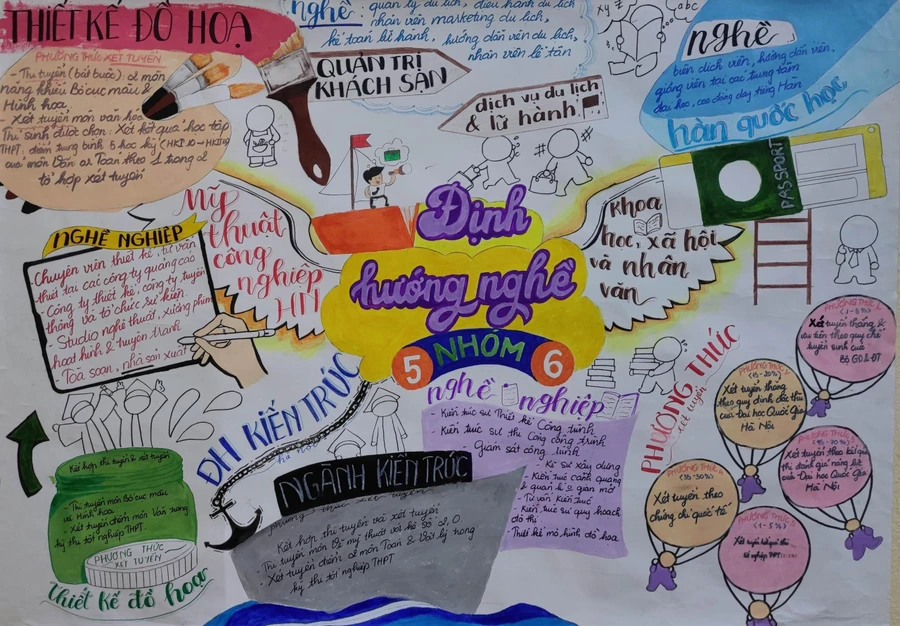 THIẾT KẾ ĐỒ HOẠ
PHƯƠNG THỨC XÉT TUYỂN
- Thi tuyển (bắt buộc): 2 môn
năng khiếu Bố cục màu &
Hình hoạ
- Xét tuyển môn văn hoá
Thí sinh được chọn: Xét kết quả học tập
THPT: điểm trung bình 5 học kỳ (HKI 10 → HKI 12)
của môn Văn or Toán theo 1 trong 2
tổ hợp xét tuyển
nghề:
quản lý du lịch, điều hành du lịch
nhân viên marketing du lịch,
kế toán lữ hành, hướng dẫn viên du lịch,
nhân viên lễ tân
QUẢN TRỊ
KHÁCH SẠN
dịch vụ du lịch
& lữ hành
abc
nghề
biên dịch viên, hướng dẫn viên,
giảng viên tại các trung tâm
đại học, cao đẳng dạy tiếng Hàn
hàn quốc học
PASSPORT
Mỹ
thuật
công
nghiệp
HN
Định
hướng nghề
5 NHÓM 6
khoa
học, xã hội
và nhân
văn
NGHỀ NGHIỆP
- Chuyên viên thiết kế, tư vấn
thiết tại các công ty quảng cáo
- Công ty thiết kế, công ty truyền
thông và tổ chức sự kiện
- Studio nghệ thuật, xưởng phim
hoạt hình & truyện tranh
- Toà soạn, nhà sản xuất
Kết hợp thi tuyển & xét tuyển
- Thi tuyển môn Bố cục màu
và Hình hoạ
Xét tuyển điểm môn Văn trong
kỳ thi tốt nghiệp THPT
PHƯƠNG THỨC
XÉT TUYỂN
thiết kế đồ hoạ
ĐH KIẾN TRÚC
hà nội
NGÀNH KIẾN TRÚC
phương thức xét tuyển
Kết hợp thi tuyển và xét tuyển
- Xét tuyển điểm 2 môn Toán & Vật lý trong
kỳ thi tốt nghiệp THPT
nghề nghiệp
- Kiến trúc sư Thiết kế Công trình
- Kiến trúc sư thi Công công trình
- Giám sát công trình
- Kĩ sư xây dựng
- Kiến trúc cảnh quan
- Tư vấn kiến trúc
- Kiến trúc sư quy hoạch
đô thị
- Thiết kế mô hình đồ hoạ
PHƯƠNG THỨC
xét tuyển
PHƯƠNG THỨC 1
(1-5%)
Xét tuyển thẳng &
ưu tiên theo quy chế
tuyển sinh của
Bộ GD&ĐT
PHƯƠNG THỨC
(15-20%)
Xét tuyển thẳng
theo quy định đặc thù
của Đại học Quốc Gia
Hà Nội
PHƯƠNG THỨC
Xét tuyển theo kết quả
thi đánh giá năng lực
của Đại học Quốc Gia
Hà Nội
PHƯƠNG THỨC
Xét tuyển theo
chứng chỉ quốc tế
PHƯƠNG THỨC
Xét tuyển kết quả thi
tốt nghiệp THPT